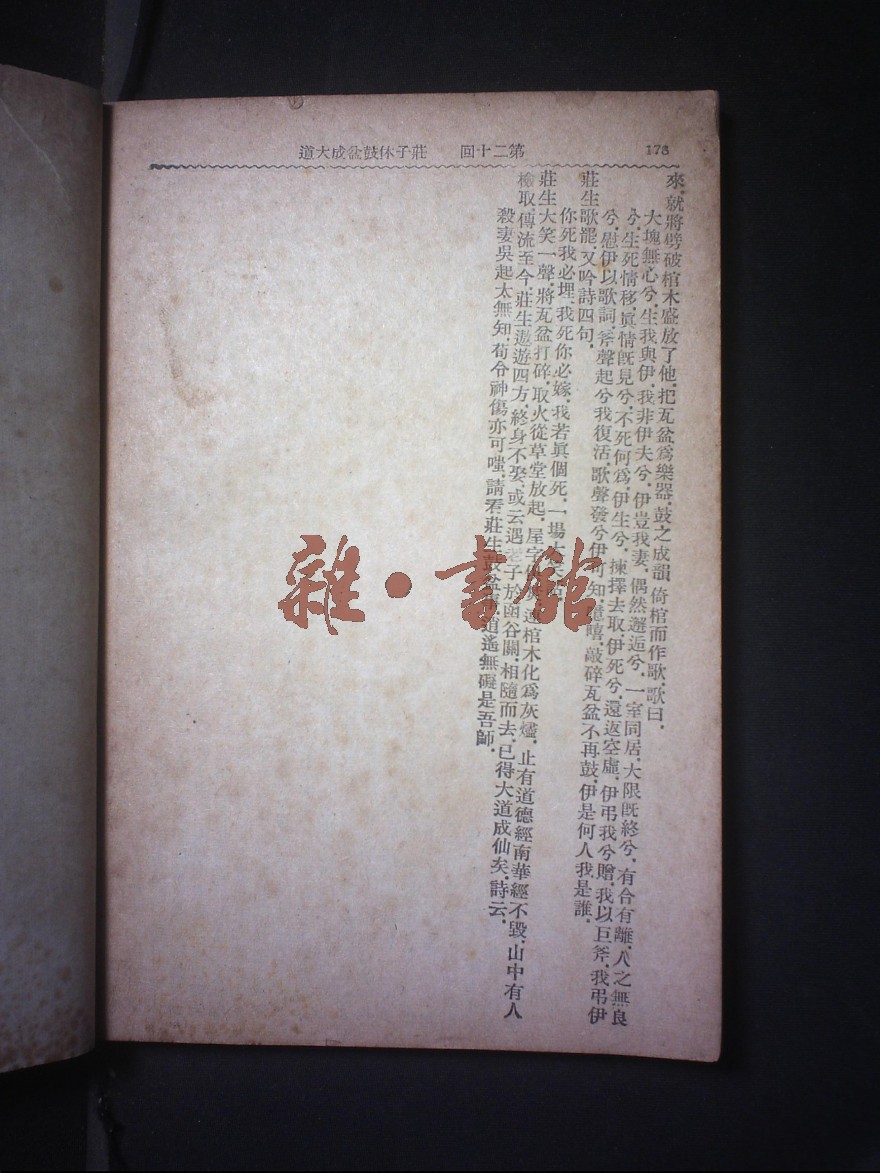 第二十回　莊子休鼓盆成大道
176
來.就將劈破棺木盛放了他.把瓦盆爲樂器.鼓之成韻.倚棺而作歌.歌曰.
大塊無心兮.生我與伊.我非伊夫兮.伊豈我妻.偶然邂逅兮.一室同居.大限旣終兮.有合有離.人之無良
兮.生死情移.眞情旣見兮.不死何爲.伊生兮.揀擇去取.伊死兮.還返空虛.伊弔我兮.贈我以巨斧.我弔伊
兮.慰伊以歌詞.斧聲起兮我復活.歌聲發兮伊可知.噫嘻.敲碎瓦盆不再鼓.伊是何人我是誰.
莊生歌罷.又吟詩四句.
你死我必埋.我死你必嫁.我若眞個死.一場大
莊生大笑一聲.將瓦盆打碎.取火從草堂放起.屋宇 連棺木化爲灰燼.止有道德經南華經不毀.山中有人
檢取.傳流至今.莊生遨遊四方.終身不娶.或云遇老子於函谷關.相隨而去.已得大道成仙矣.詩云.
殺妻吳起太無知.荀令神傷亦可嗤.請看莊生鼓盆 逍遙無礙是吾師.
雜·書館